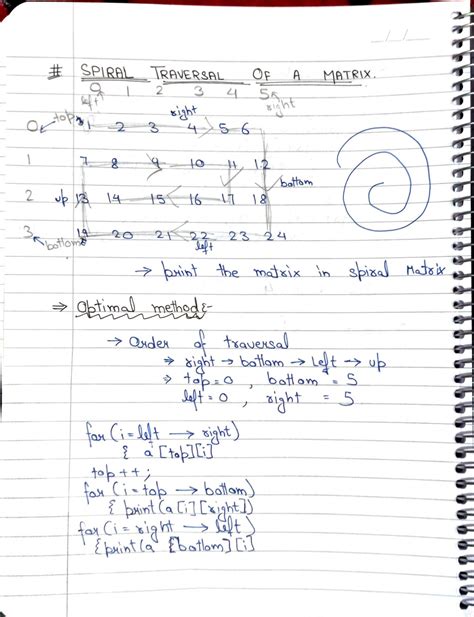 # SPIRAL TRAVERSAL OF A MATRIX.
0 1 2 3 4 5
left right
right
0 top 1 2 3 4 5 6
1 7 8 9 10 11 12
bottom
2 up 13 14 15 16 17 18
3 bottom 19 20 21 22 23 24
left
→ print the matrix in spiral Matrix
⇒ Optimal method:-
→ Order of traversal
⇒ right → bottom → left → up
⇒ top = 0 , bottom = 5
left = 0 , right = 5
for (i = left → right)
{ a [top][i]
top ++ ;
for (i = top → bottom)
{ print (a [i] [right])
for (i = right → left)
{print (a [bottom] [i]